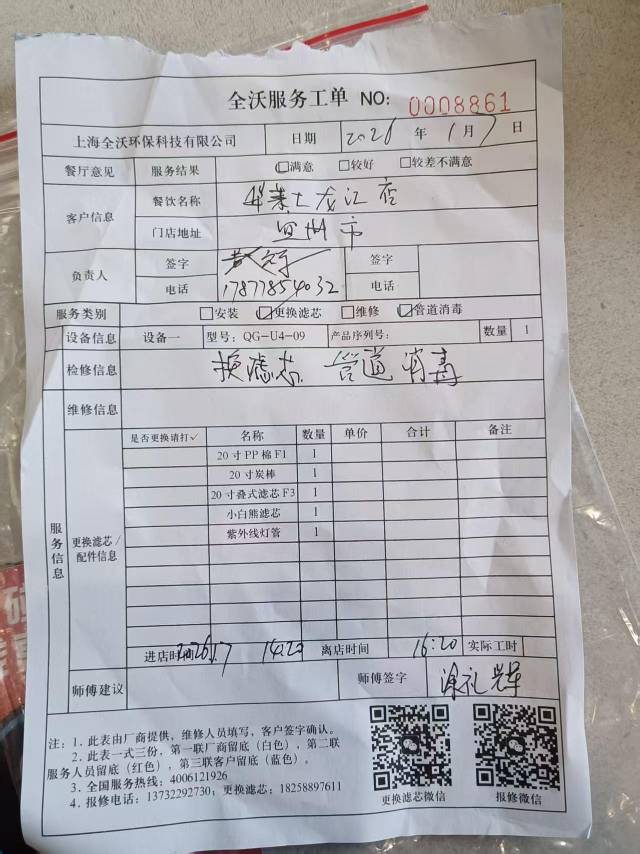 全沃服务工单 NO: 0008861
上海全沃环保科技有限公司 日期 2026 年 1月7日
餐厅意见 服务结果 □满意 □较好 □较差不满意
客户信息 餐饮名称 华莱士龙江店
门店地址 宜州市
负责人 签字 签字
电话 17877854032 电话
服务类别 □安装 ☑更换滤芯 □维修 ☑管道消毒
设备信息 设备一 型号: QG-U4-09 产品序列号: 数量 1
检修信息 换滤芯 管道消毒
维修信息
服务信息
更换滤芯/配件信息
是否更换请打✓ 名称 数量 单价 合计 备注
20寸PP棉F1 1
20寸炭棒 1
20寸叠式滤芯F3 1
小白熊滤芯 1
紫外线灯管 1
进店时间 2026.1.7 14:20 离店时间 16:20 实际工时
师傅建议 师傅签字 涂礼辉
注: 1. 此表由厂商提供, 维修人员填写, 客户签字确认。
2. 此表一式三份, 第一联厂商留底(白色), 第二联
服务人员留底(红色), 第三联客户留底(蓝色)。
3. 全国服务热线: 4006121926
4. 报修电话: 13732292730; 更换滤芯: 18258897611
更换滤芯微信 报修微信